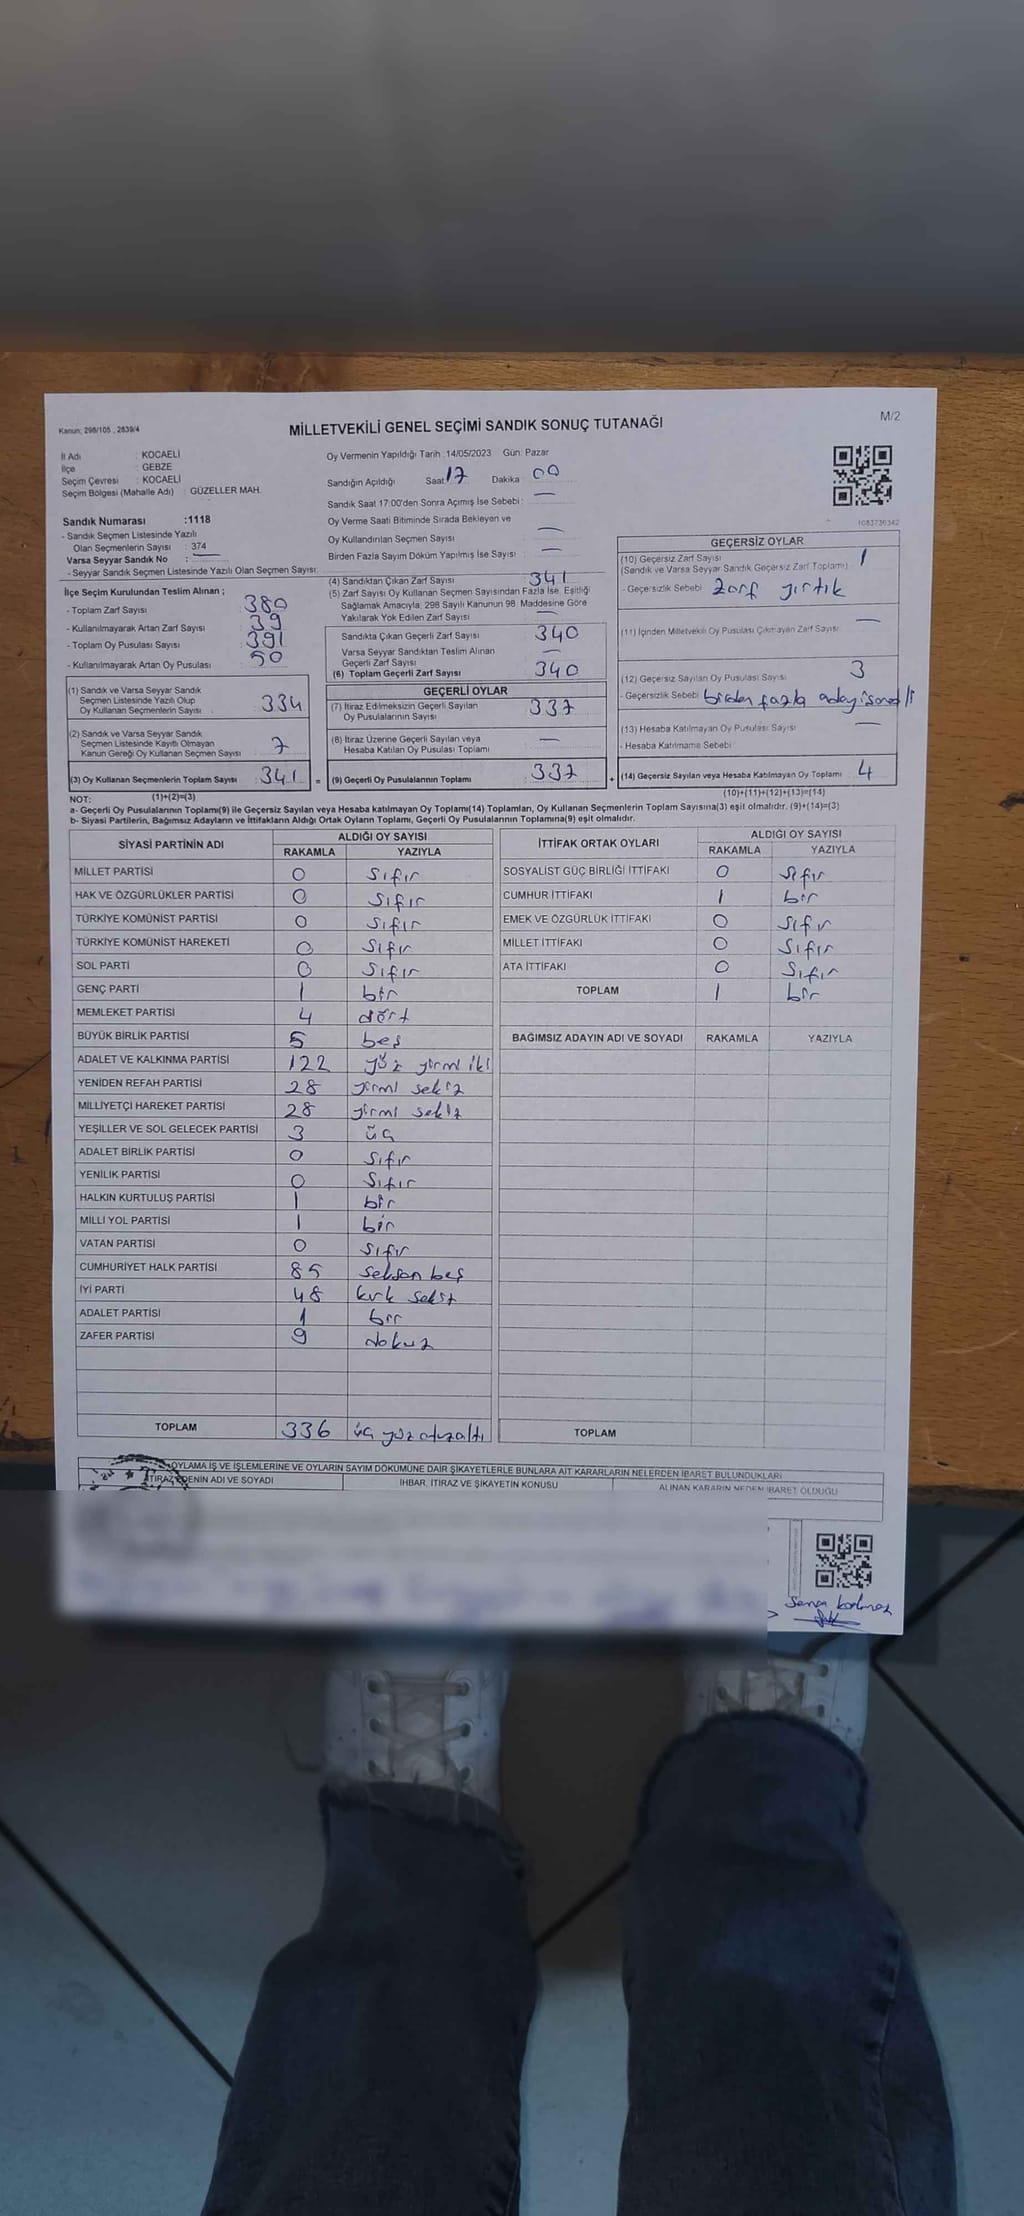 Kanun; 298/105 , 2839/4
M/2
MİLLETVEKİLİ GENEL SEÇİMİ SANDIK SONUÇ TUTANAĞI
İl Adı : KOCAELİ
İlçe : GEBZE
Seçim Çevresi : KOCAELİ
Seçim Bölgesi (Mahalle Adı) : GÜZELLER MAH.
Sandık Numarası :1118
- Sandık Seçmen Listesinde Yazılı
Olan Seçmenlerin Sayısı : 374
Varsa Seyyar Sandık No : —
- Seyyar Sandık Seçmen Listesinde Yazılı Olan Seçmen Sayısı:
Oy Vermenin Yapıldığı Tarih :14/05/2023 Gün: Pazar
Sandığın Açıldığı Saat 17 Dakika 00
Sandık Saat 17:00'den Sonra Açımış İse Sebebi : —
Oy Verme Saati Bitiminde Sırada Bekleyen ve
Oy Kullandırılan Seçmen Sayısı : —
Birden Fazla Sayım Döküm Yapılmış İse Sayısı : —
1083736342
İlçe Seçim Kurulundan Teslim Alınan ;
- Toplam Zarf Sayısı : 380
- Kullanılmayarak Artan Zarf Sayısı : 39
- Toplam Oy Pusulası Sayısı : 391
- Kullanılmayarak Artan Oy Pusulası : 50
(1) Sandık ve Varsa Seyyar Sandık
Seçmen Listesinde Yazılı Olup
Oy Kullanan Seçmenlerin Sayısı : 334
(2) Sandık ve Varsa Seyyar Sandık
Seçmen Listesinde Kayıtlı Olmayan
Kanun Gereği Oy Kullanan Seçmen Sayısı : 7
(3) Oy Kullanan Seçmenlerin Toplam Sayısı : 341 =
(4) Sandıktan Çıkan Zarf Sayısı : 341
(5) Zarf Sayısı Oy Kullanan Seçmen Sayısından Fazla İse, Eşitliği
Sağlamak Amacıyla, 298 Sayılı Kanunun 98. Maddesine Göre
Yakılarak Yok Edilen Zarf Sayısı : —
Sandıkta Çıkan Geçerli Zarf Sayısı : 340
Varsa Seyyar Sandıktan Teslim Alınan
Geçerli Zarf Sayısı : —
(6) Toplam Geçerli Zarf Sayısı : 340
GEÇERLİ OYLAR
(7) İtiraz Edilmeksizin Geçerli Sayılan
Oy Pusulalarının Sayısı : 337
(8) İtiraz Üzerine Geçerli Sayılan veya
Hesaba Katılan Oy Pusulası Toplamı : —
(9) Geçerli Oy Pusulalarının Toplamı : 337 +
GEÇERSİZ OYLAR
(10) Geçersiz Zarf Sayısı : 1
(Sandık ve Varsa Seyyar Sandık Geçersiz Zarf Toplamı)
- Geçersizlik Sebebi : Zarf yırtık
(11) İçinden Milletvekili Oy Pusulası Çıkmayan Zarf Sayısı : —
(12) Geçersiz Sayılan Oy Pusulası Sayısı : 3
- Geçersizlik Sebebi : birden fazla aday
(13) Hesaba Katılmayan Oy Pusulası Sayısı : —
- Hesaba Katılmama Sebebi :
(14) Geçersiz Sayılan veya Hesaba Katılmayan Oy Toplamı : 4
NOT: (1)+(2)=(3)
(10)+(11)+(12)+(13)=(14)
a- Geçerli Oy Pusulalarının Toplamı(9) ile Geçersiz Sayılan veya Hesaba katılmayan Oy Toplamı(14) Toplamları, Oy Kullanan Seçmenlerin Toplam Sayısına(3) eşit olmalıdır. (9)+(14)=(3)
b- Siyasi Partilerin, Bağımsız Adayların ve İttifakların Aldığı Ortak Oyların Toplamı, Geçerli Oy Pusulalarının Toplamına(9) eşit olmalıdır.
SİYASİ PARTİNİN ADI ALDIĞI OY SAYISI
RAKAMLA YAZIYLA
MİLLET PARTİSİ 0 sıfır
HAK VE ÖZGÜRLÜKLER PARTİSİ 0 sıfır
TÜRKİYE KOMÜNİST PARTİSİ 0 sıfır
TÜRKİYE KOMÜNİST HAREKETİ 0 sıfır
SOL PARTİ 0 sıfır
GENÇ PARTİ 1 bir
MEMLEKET PARTİSİ 4 dört
BÜYÜK BİRLİK PARTİSİ 5 beş
ADALET VE KALKINMA PARTİSİ 122 yüz yirmi iki
YENİDEN REFAH PARTİSİ 28 yirmi sekiz
MİLLİYETÇİ HAREKET PARTİSİ 28 yirmi sekiz
YEŞİLLER VE SOL GELECEK PARTİSİ 3 üç
ADALET BİRLİK PARTİSİ 0 sıfır
YENİLİK PARTİSİ 0 sıfır
HALKIN KURTULUŞ PARTİSİ 1 bir
MİLLİ YOL PARTİSİ 1 bir
VATAN PARTİSİ 0 sıfır
CUMHURİYET HALK PARTİSİ 85 seksen beş
İYİ PARTİ 48 kırk sekiz
ADALET PARTİSİ 1 bir
ZAFER PARTİSİ 9 dokuz
TOPLAM 336 üç yüz otuzaltı
İTTİFAK ORTAK OYLARI ALDIĞI OY SAYISI
RAKAMLA YAZIYLA
SOSYALİST GÜÇ BİRLİĞİ İTTİFAKI 0 sıfır
CUMHUR İTTİFAKI 1 bir
EMEK VE ÖZGÜRLÜK İTTİFAKI 0 sıfır
MİLLET İTTİFAKI 0 sıfır
ATA İTTİFAKI 0 sıfır
TOPLAM 1 bir
BAĞIMSIZ ADAYIN ADI VE SOYADI RAKAMLA YAZIYLA
TOPLAM
OYLAMA İŞ VE İŞLEMLERİNE VE OYLARIN SAYIM DÖKÜMÜNE DAİR ŞİKAYETLERLE BUNLARA AİT KARARLARIN NELERDEN İBARET BULUNDUKLARI
İTİRAZ EDENİN ADI VE SOYADI İHBAR, İTİRAZ VE ŞİKAYETİN KONUSU ALINAN KARARIN NEDEN İBARET OLDUĞU